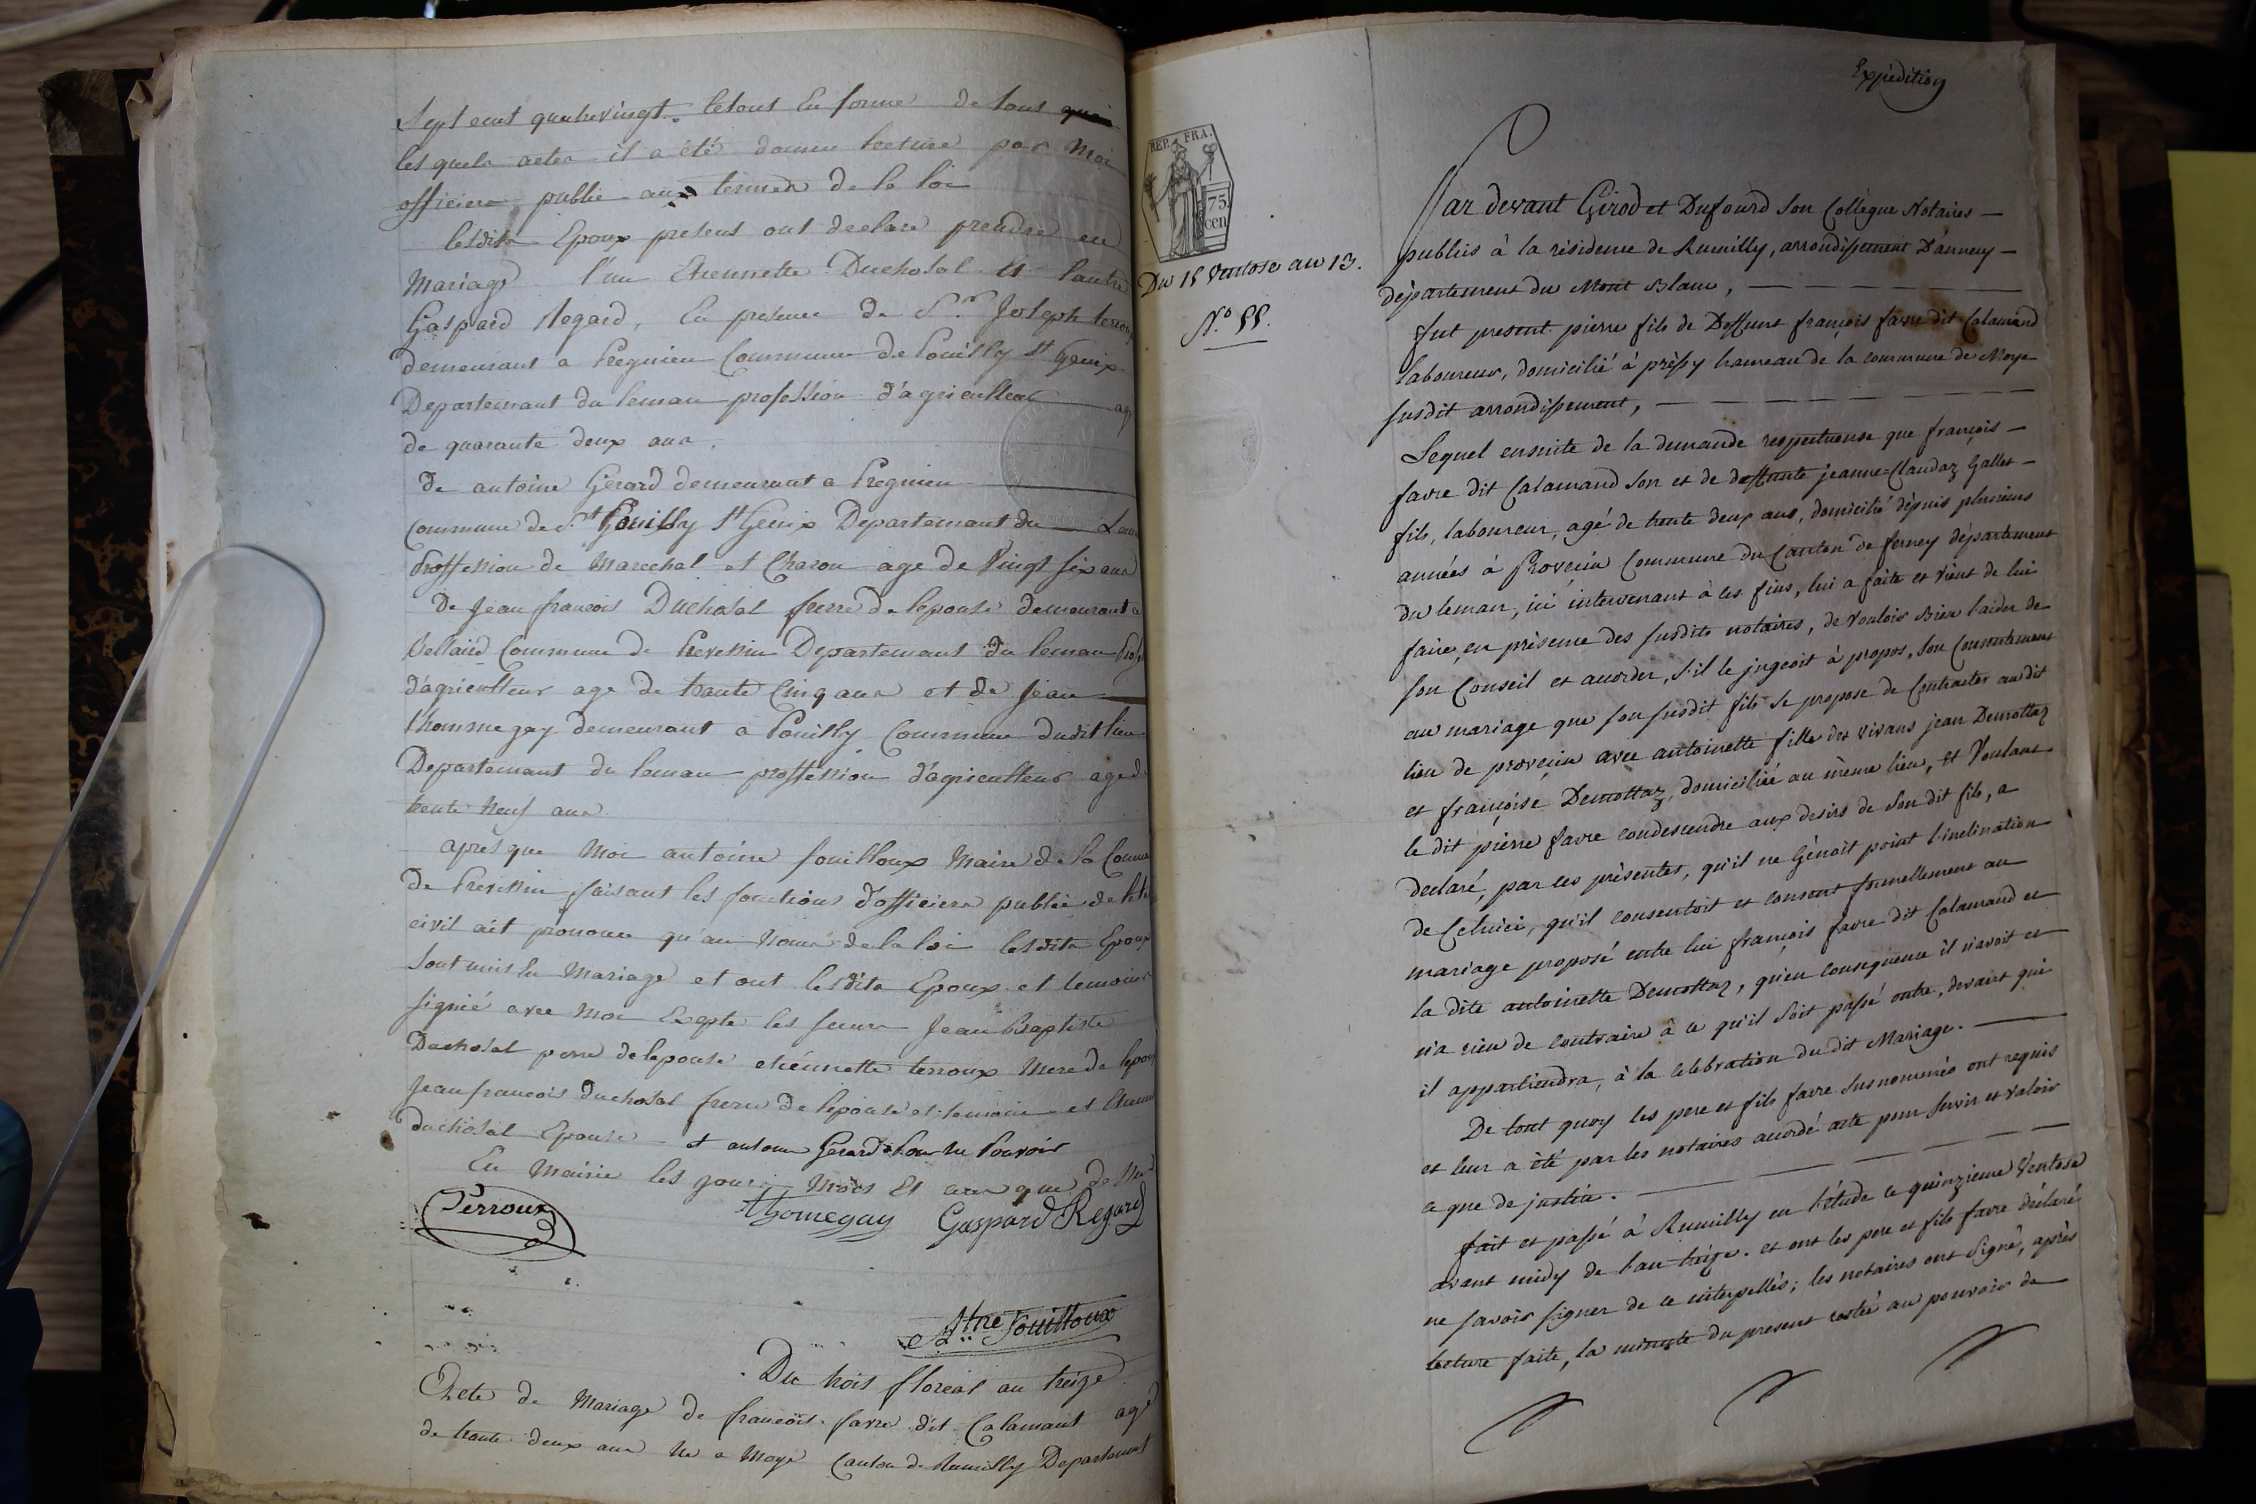 Sept cent quatrevingt. letout En forme de tous
les quels actes il a été donnée lecture par Moi
officiere public aux termes de la loi
lesdits Epoux presens ont declaré prendre en
Mariage l'un Etiennette Duchosal et l'autre
Gaspard Regard, En presence de Sr. Joseph terroux
demeurant a Pregnien Commune de Pouilly St Genix
Departemant du leman profession d'agriculteur ag
de quarante deux ans.
de antoine Gerard demeurant a Pregnien
Commune de Pouilly St Genix Departemant du Lem
Proffession de Marechal et Charon age de Vingt six ans
De Jean francois Duchosal frerre de lepouse demeurant a
Vellard Commune de Prevessin Departemant du leman Prof
d'agriculteur age de trante Cinq ans et de Jean
thommegay demeurant a Pouilly Commune dudit lieu
Departemant du leman proffession d'agriculteur age d
trente Neuf ans
apres que Moi antoine fouilloux Maire de la Comm
de Prevessin faisant les fonctions d'officiere public de let
civil ait prononcé qu'au Nom de la loi lesdits Epoux
sont unis En Mariage et ont lesdits Epoux et temoins
signié avec Moi Exepte les sieurs Jean Baptiste
Duchosal perre delepouse etiennette terroux Mere de lepou
Jean francois duchosal frere de lepouse et temoin et Etienn
duchosal Epouse et antoine Gerard Pour ne Pouvoir
En Mairie les jour Mois Et an que dessus
Perroux thomegay Gaspard Regard
Antne Fouilloux
Du trois floreal an treize
Acte de Mariage de francois favre dit Calamant agé
de trante deux ans Né a Moye Canton de Rumilly Departemant
Expédition
REP. FRA.
75
cen
Du 15 Ventose an 13.
N.º 55.
Par devant Girod et Dufourd son Collègue Notaires
publics à la résidence de Rumilly, arrondissement D'annecy
département du Mont Blanc,
fut present pierre fils de Deffunt françois favre dit Calamand
laboureur, domicilié à pressy hameau de la commune de Moye
susdit arrondissement,
Lequel ensuite de la demande respectueuse que françois
favre dit Calamand son et de deffunte jeanne-Claudaz Gallet
fils, laboureur, agé de trente deux ans, domicilié dèpuis plusieurs
années à Provecin Commune du Canton de ferney département
du leman, ici intervenant à ces fins, lui a faite et vient de lui
faire, en présence des susdits notaires, de vouloir bien l'aider de
son Conseil et accorder, s'il le jugeoit à propos, son Consentement
au mariage que son susdit fils se propose de Contracter audit
lieu de provecin avec antoinette fille des vivans jean Demottaz
et françoise Demottaz, domiciliée au même lieu, et Voulant
le dit pierre favre condescendre aux desirs de son dit fils, a
declaré, par ces présentes, qu'il ne Génoit point l'inclination
de Celuici, qu'il consentoit et consent formellement au
mariage proposé entre lui françois favre dit Calamand et
la dite antoinette Demottaz, qu'en consequence il n'avoit et
n'a rien de contraire à ce qu'il soit passé outre, devant qui
il appartiendra, à la celebration du dit Mariage.
De tout quoy les pere et fils favre susnommés ont requis
et leur a été par les notaires accordé acte pour servir et valoir
ce que de justice.
fait et passé à Rumilly en l'étude ce quinzieme Ventose
avant midy de l'an treize. et ont les pere et fils favre déclaré
ne savoir signer de ce interpellés; les notaires ont signé, après
lecture faite, la minute du present restée au pouvoir de